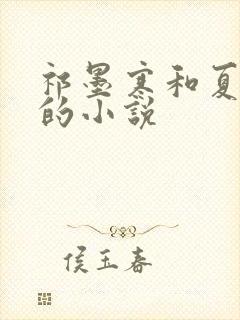 祁墨寒和夏
的小説
侯玉春